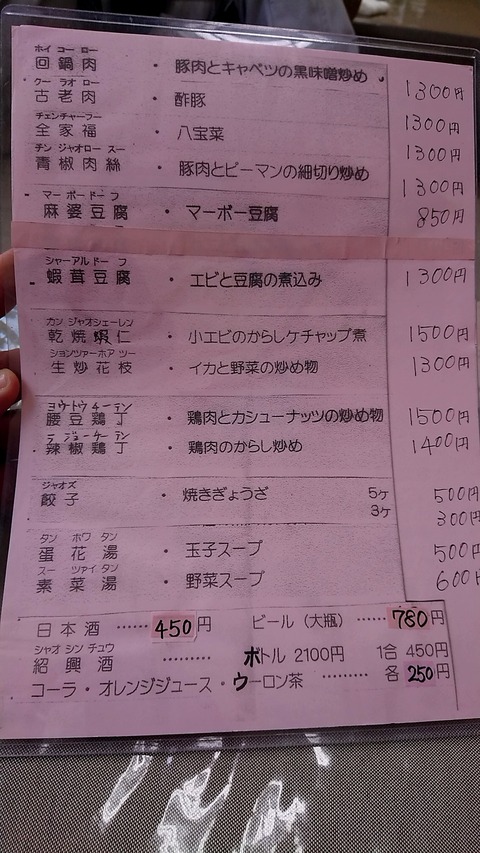 ホイ コー ロー
回鍋肉 ・ 豚肉とキャベツの黒味噌炒め 1300円
クー ラオ ロー
古老肉 ・ 酢豚 1300円
チェンチャーフー
全家福 ・ 八宝菜 1300円
チン ジャオロー スー
青椒肉絲 ・ 豚肉とピーマンの細切り炒め 1300円
マー ボー ドー フ
麻婆豆腐 ・ マーボー豆腐 850円
シャーアルドー フ
蝦茸豆腐 ・ エビと豆腐の煮込み 1300円
カン ジャオシェーレン
乾焼蝦仁 ・ 小エビのからしケチャップ煮 1500円
ションツァーホア ツー
生炒花枝 ・ イカと野菜の炒め物 1300円
ヨウトウチーテン
腰豆鶏丁 ・ 鶏肉とカシューナッツの炒め物 1500円
ラージョーケーテン
辣椒鶏丁 ・ 鶏肉のからし炒め 1400円
ジャオズ
餃子 ・ 焼きぎょうざ 5ヶ 500円
3ヶ 300円
タン ホワ タン
蛋花湯 ・ 玉子スープ 500円
スー ツァイ タン
素菜湯 ・ 野菜スープ 600円
日本酒 …… 450円 ビール（大瓶） …… 780円
シャオ シン チュウ
紹興酒 ……… ボトル 2100円 1合 450円
コーラ・オレンジジュース・ウーロン茶 ……… 各 250円